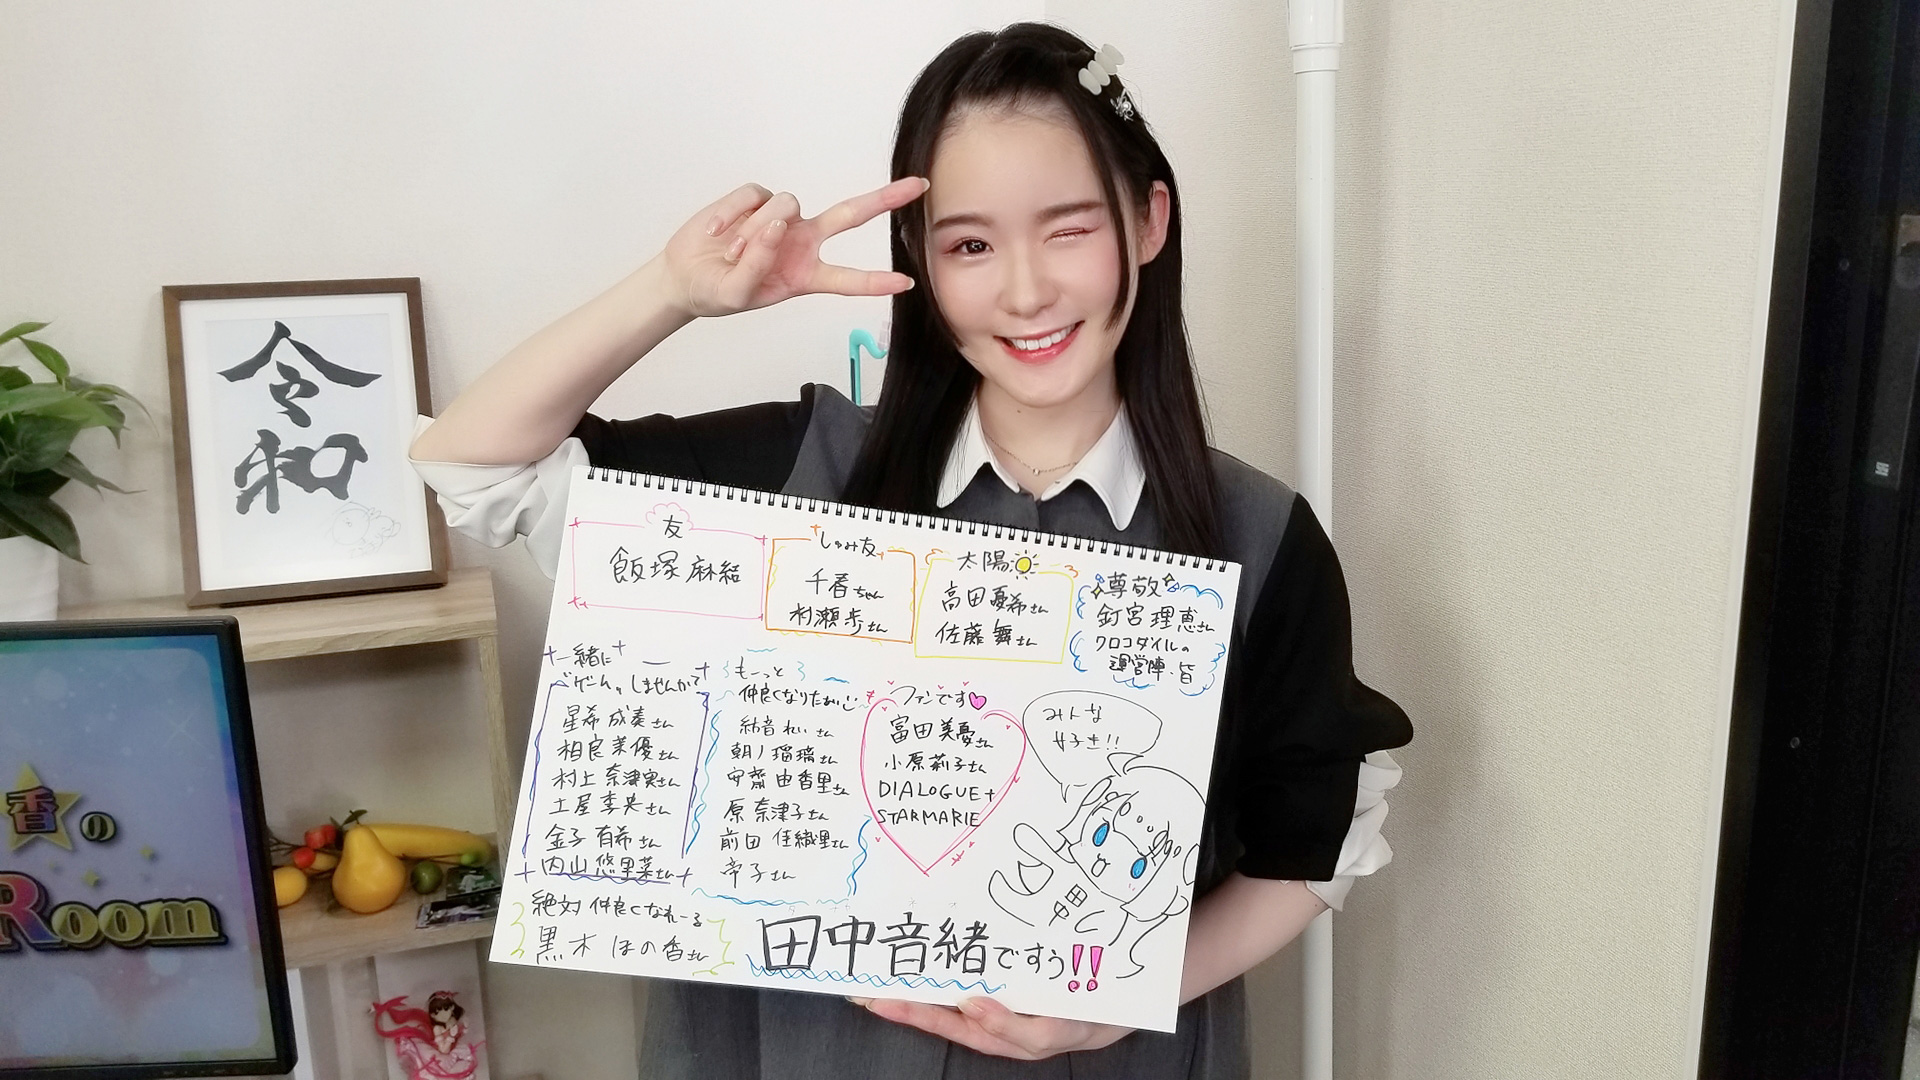 令和
香の
Room
友
飯塚麻結
しゅみ友
千春ちゃん
村瀬歩さん
太陽
高田憂希さん
佐藤舞さん
尊敬
釘宮理恵さん
クロコダイルの
運営陣・皆
一緒に
ゲームしませんか?
星希成奏さん
相良茉優さん
村上奈津実さん
土屋李央さん
金子有希さん
内山悠里菜さん
もーっと
仲良くなりたぁい
紡音れいさん
朝ノ瑠璃さん
安齋由香里さん
原奈津子さん
前田佳織里さん
帝子さん
ファンです
富田美憂さん
小原莉子さん
DIALOGUE+
STARMARIE
みんな
好き!!
田中
絶対仲良くなれーる
黒木ほの香さん
田中音緒ですぅ!!